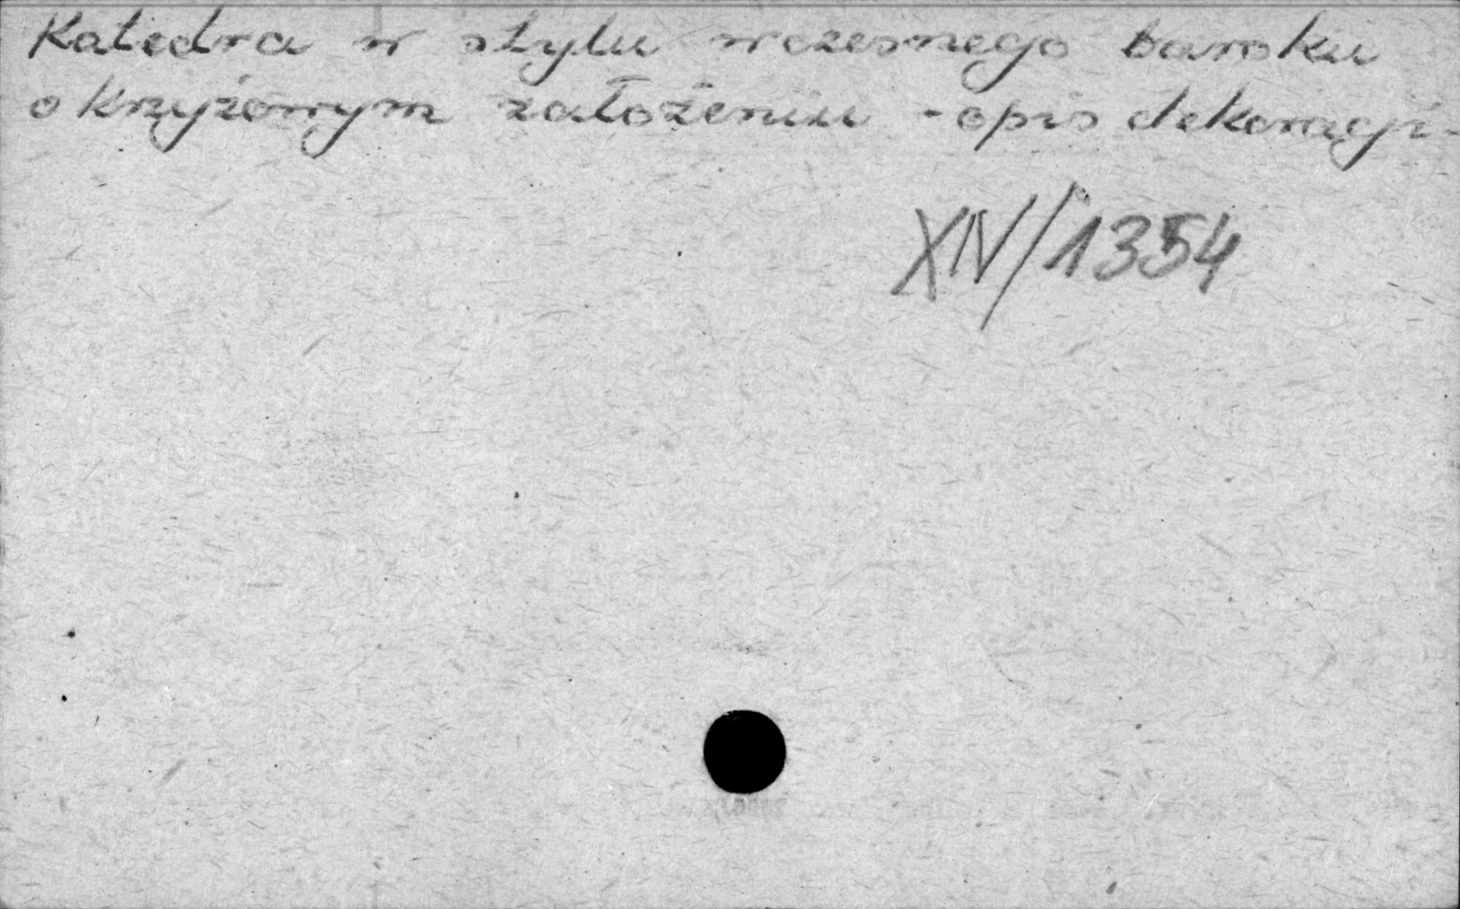 Katedra w stylu wczesnego baroku
o krzyżowym założeniu - opis dekoracji -
XIV/1354